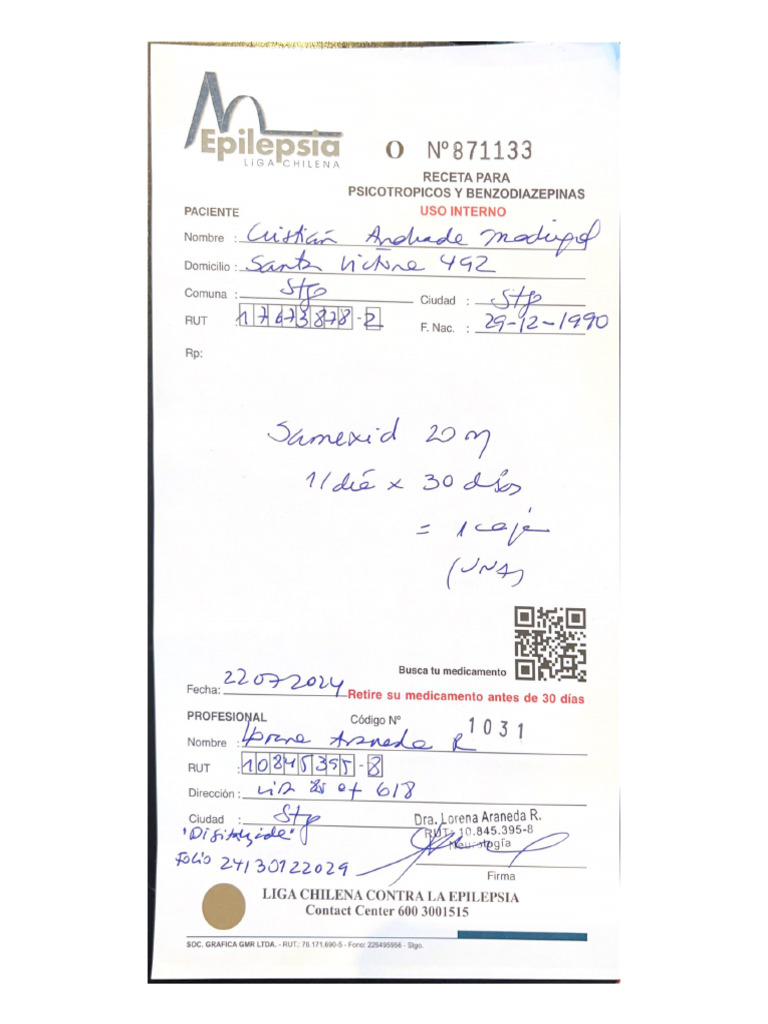 Epilepsia
LIGA CHILENA
O Nº 871133
RECETA PARA
PSICOTROPICOS Y BENZODIAZEPINAS
USO INTERNO
PACIENTE
Nombre : Cristián Andrade
Domicilio : Santa Victoria 492
Comuna : Stgo
Ciudad : Stgo
RUT : 17673878-2
F. Nac. : 29-12-1990
Rp:
Samexid 20 m
1/día x 30 días
= 1 caja
(UNA)
Busca tu medicamento
Fecha: 22072024
Retire su medicamento antes de 30 días
PROFESIONAL
Código Nº 1031
Nombre : Lorena Araneda R
RUT : 10845395-8
Dirección : of 618
Ciudad : Stgo
Dra. Lorena Araneda R.
RUT: 10.845.395-8
Neurología
FOLIO 24130122029
Firma
LIGA CHILENA CONTRA LA EPILEPSIA
Contact Center 600 3001515
SOC. GRAFICA GMR LTDA. - RUT.: 76.171.690-5 - Fono: 226495956 - Stgo.